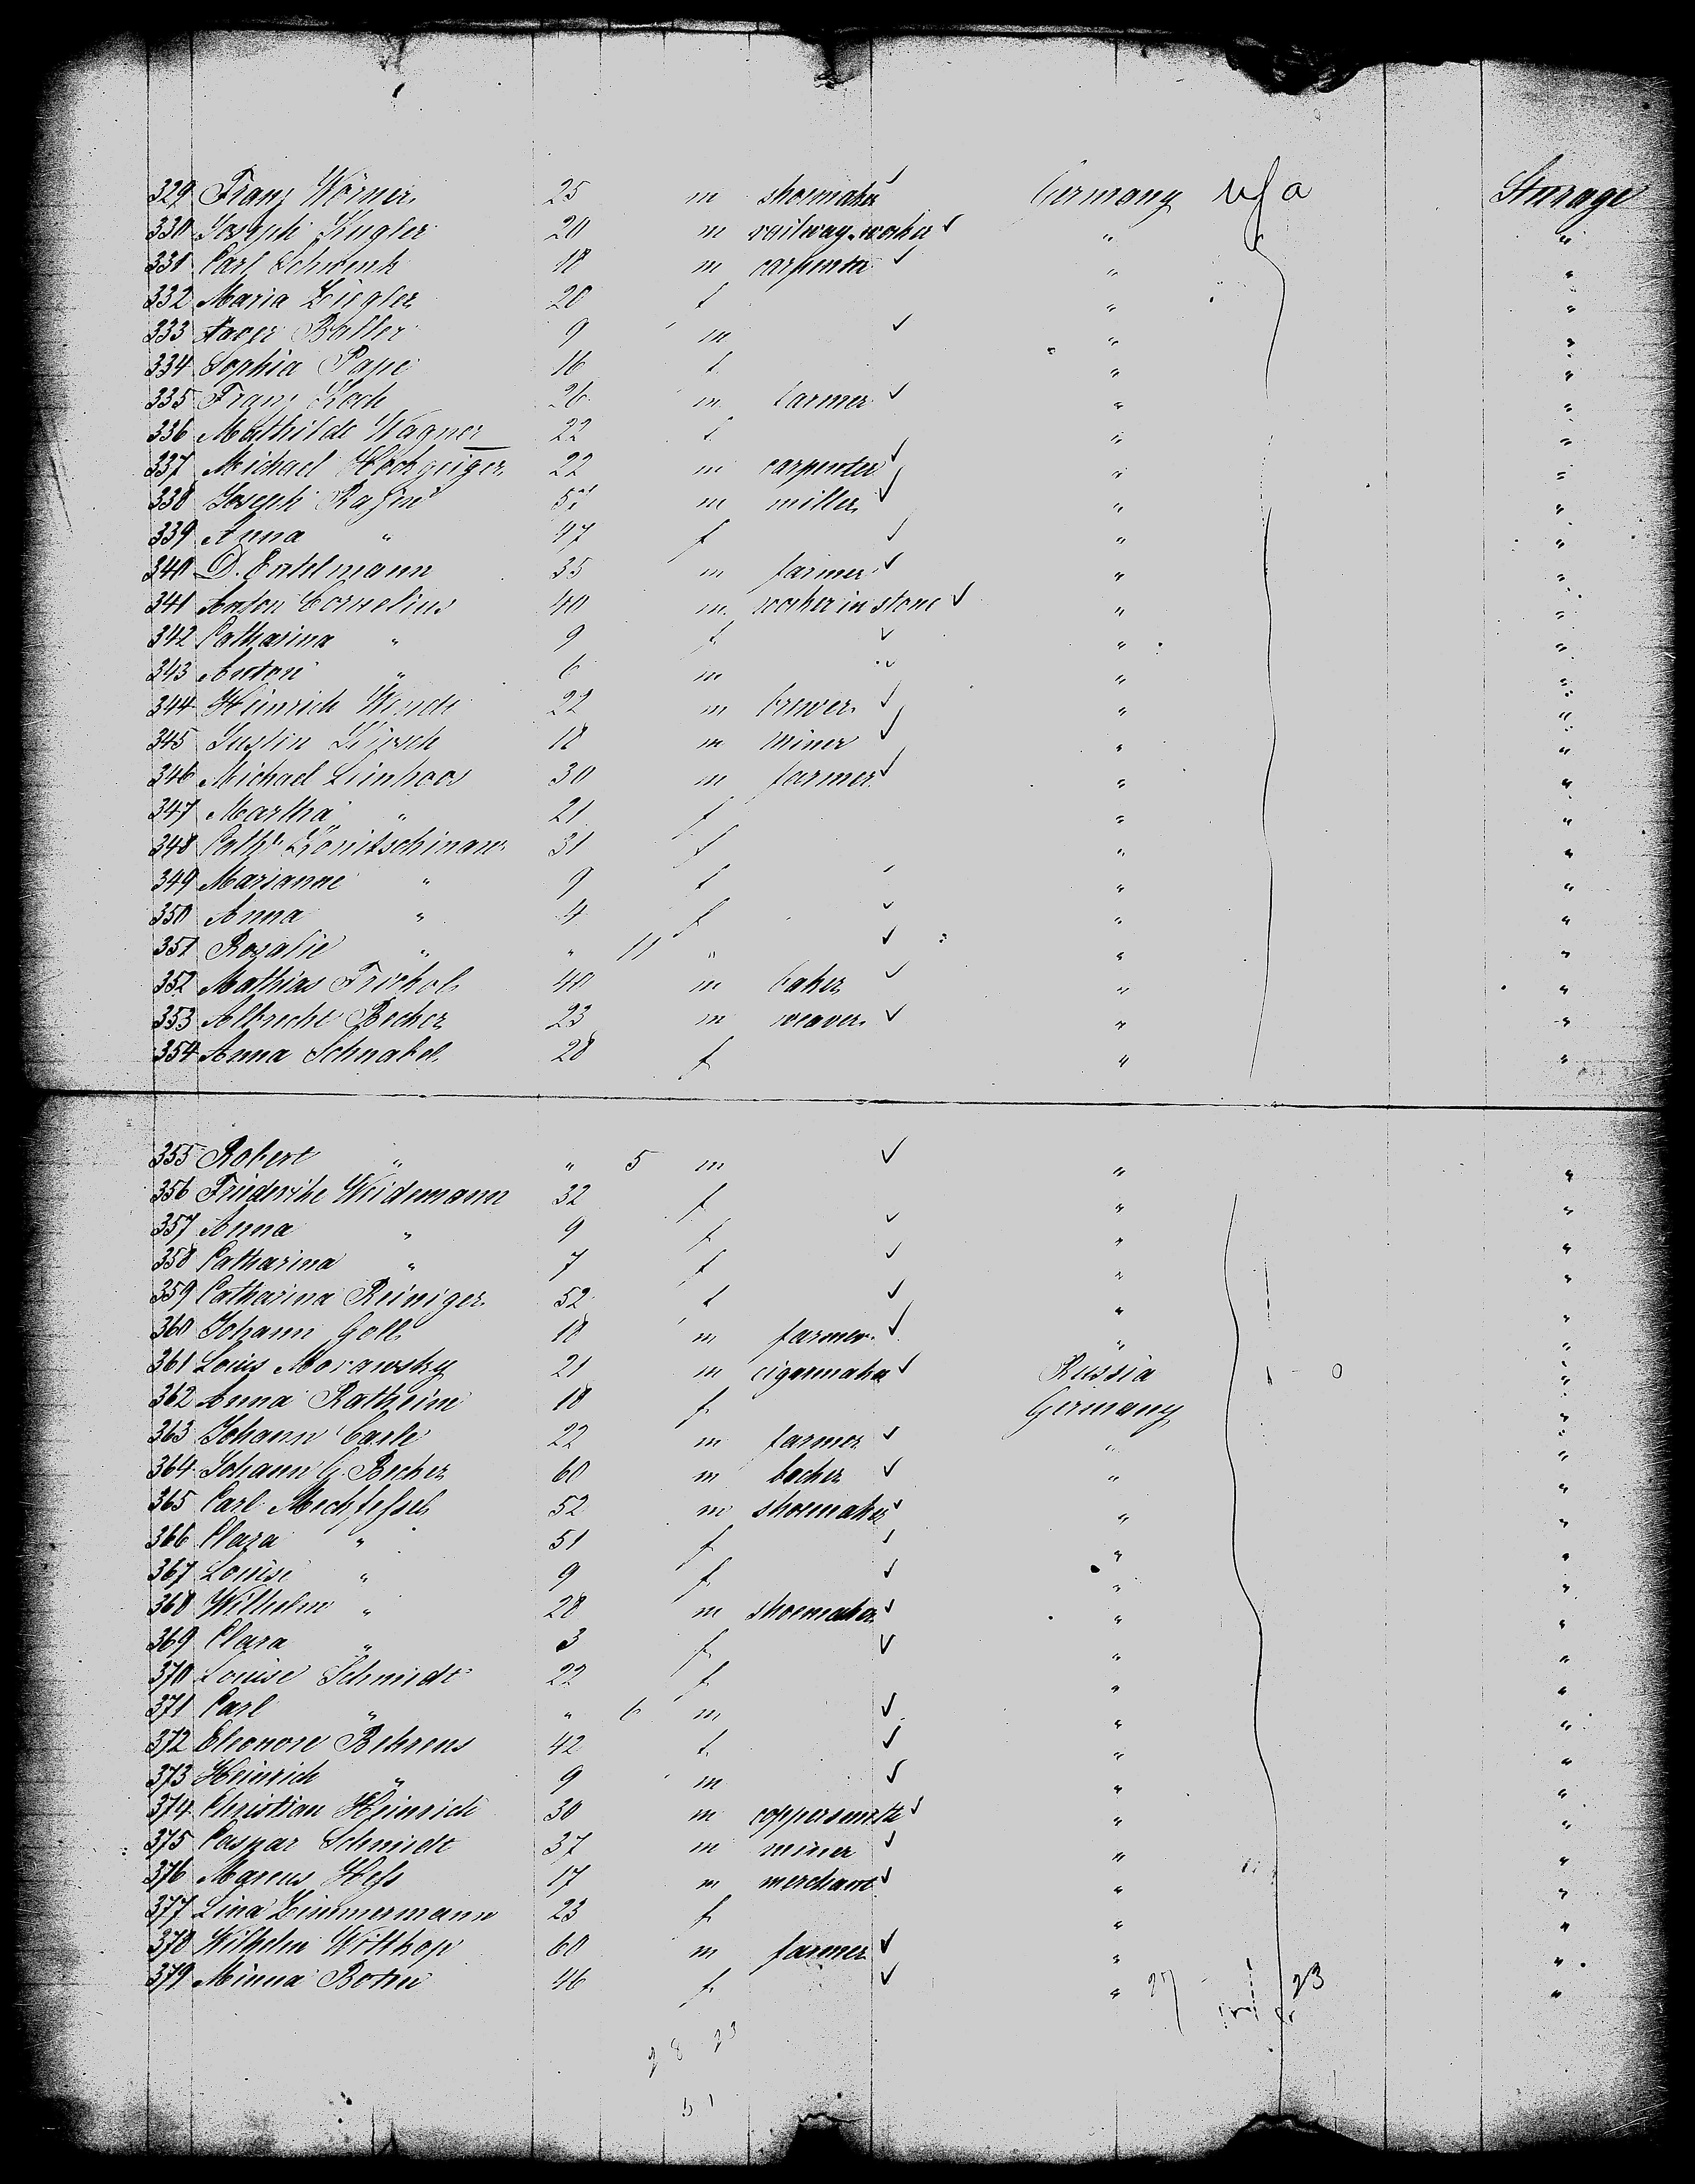 329 Franz Wörner 25 m shoemaker Germany usa Sturage
330 Joseph Kugler 20 m railway-worker " "
331 Carl Schwenk 18 m carpenter " "
332 Maria Ziegler 20 f " "
333 9 m " "
334 Sophia Pape 16 f " "
335 Franz Koch 26 m farmer " "
336 Mathilde Wagner 22 f " "
337 Michael Hochgeiger 22 m carpenter " "
338 Joseph m miller " "
339 Anna " 47 f " "
340 D. Enkelmann 35 m farmer " "
341 Anton Cornelius 40 m worker in stone " "
342 Catharina " 9 f " "
343 Anton " 6 m " "
344 Heinrich Wende 22 m brewer " "
345 Justin 18 m miner " "
346 Michael 30 m farmer " "
347 Martha " 21 f " "
348 Cath. 31 f " "
349 Marianne " 9 f " "
350 Anna " 4 f " "
351 Rosalie " " 11 " " "
352 Mathias 40 m baker " "
353 Albrecht Becker 23 m weaver " "
354 Anna Schnabel 28 f " "
355 Robert " " 5 m " "
356 Friederike Weidemann 32 f " "
357 Anna " 9 f " "
358 Catharina " 7 f " "
359 Catharina Reiniger 52 f " "
360 Johann Goll 18 m farmer " "
361 Louis Morawsky 21 m cigarmaker Russia "
362 Anna Ratheim 18 f Germany "
363 Johann 22 m farmer " "
364 Johann G. Becker 60 m backer " "
365 Carl Mechfessel 52 m shoemaker " "
366 Clara " 51 f " "
367 Louise " 9 f " "
368 Wilhelm " 28 m shoemaker " "
369 Clara " 3 f " "
370 Louise Schmidt 22 f " "
371 Carl " " 6 m " "
372 Eleonore Behrens 42 f " "
373 Heinrich " 9 m " "
374 Christian Heinrich 30 m coppersmith " "
375 Caspar Schmidt 37 m miner " "
376 Marcus Hess 17 m merchant " "
377 Lina Zimmermann 23 f " "
378 Wilhelm Wilthop 60 m farmer " "
379 Minna 46 f " 23 "
28 23
51